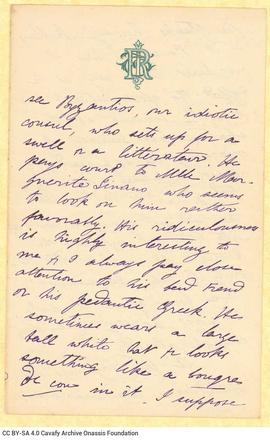 see Byzantios, our idiotic
consul, who sets up for a
swell or a littérateur. He
pays court to Mlle Mar-
guerite Zinano who seems
to look on him rather
favorably. His ridiculousness
is highly interesting to
me & I always pay close
attention to his
or his pedantic Greek. He
sometimes wears a large
tall white hat & looks
something like a bougre
de con in it. I suppose
CC BY-SA 4.0 Cavafy Archive Onassis Foundation